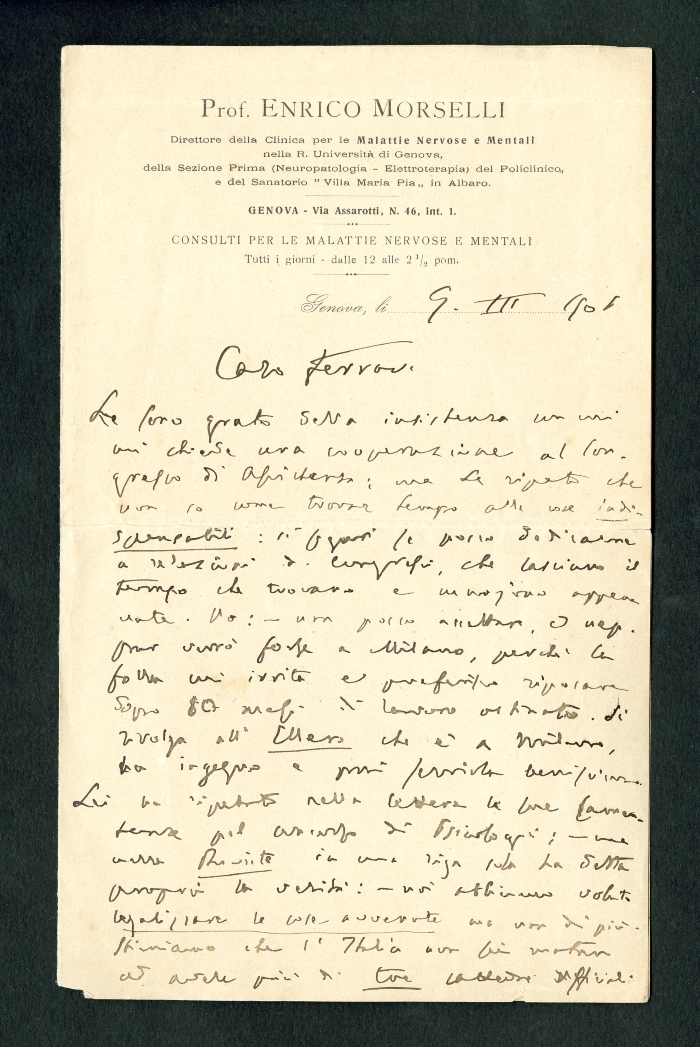 Prof. ENRICO MORSELLI
Direttore della Clinica per le Malattie Nervose e Mentali
nella R. Università di Genova,
della Sezione Prima (Neuropatologia - Elettroterapia) del Policlinico,
e del Sanatorio " Villa Maria Pia „ in Albaro.
GENOVA - Via Assarotti, N. 46, int. 1.
CONSULTI PER LE MALATTIE NERVOSE E MENTALI
Tutti i giorni - dalle 12 alle 2 1/2 pom.
Genova, li 9. III 190
Caro Ferrari
Le sono grato della insistenza con cui
mi chiede una cooperazione al Con-
gresso di Assistenza; ma Le ripeto che
non so come trovar tempo alle cose indi-
spensabili: si figuri se posso dedicarne
a relazioni di congressi, che lasciano il
tempo che trovano e muojono appena
nate. No: - non posso accettare, e nep-
pur verrò forse a Milano, perchè la
folla mi irrita e preferisco riposare
dopo mesi di lavoro ostinato. Si
rivolga all' Ellero che è a
ha ingegno e può servirla benissimo.
Lei ha ripetuto nella lettera le sue lamen-
tenze pel concorso di Psicologia; - ma
nella Rivista in una riga sola ha detto
proprio la verità: - noi abbiamo voluto
legalizzare le cose avvenute ma non di più.
Stimiamo che l' Italia non sia matura
ad avere più di tre cattedre ufficiali